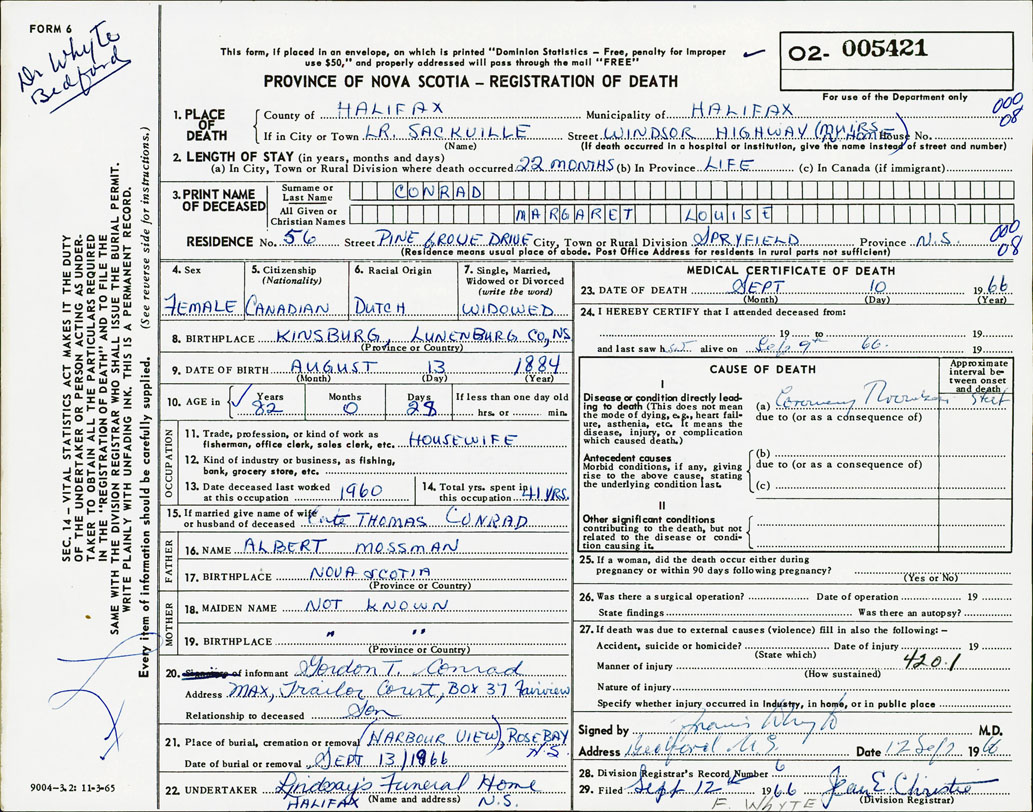 FORM 6
Dr Whyte
Bedford
This form, if placed in an envelope, on which is printed "Dominion Statistics – Free, penalty for improper
use $50," and properly addressed will pass through the mail "FREE"
PROVINCE OF NOVA SCOTIA – REGISTRATION OF DEATH
02- 005421
For use of the Department only
000
08
1. PLACE OF DEATH
County of HALIFAX Municipality of HALIFAX
If in City or Town LR. SACKVILLE Street WINDSOR HIGHWAY House No.
(Name) (If death occurred in a hospital or institution, give the name instead of street and number)
2. LENGTH OF STAY (in years, months and days)
(a) In City, Town or Rural Division where death occurred 22 MONTHS (b) In Province LIFE (c) In Canada (if immigrant)
3. PRINT NAME OF DECEASED
Surname or Last Name CONRAD
All Given or Christian Names MARGARET LOUISE
000
08
RESIDENCE No. 56 Street PINE GROVE DRIVE City, Town or Rural Division SPRYFIELD Province N.S.
(Residence means usual place of abode. Post Office Address for residents in rural parts not sufficient)
4. Sex
FEMALE
5. Citizenship
(Nationality)
CANADIAN
6. Racial Origin
DUTCH
7. Single, Married,
Widowed or Divorced
(write the word)
WIDOWED
8. BIRTHPLACE KINSBURG, LUNENBURG CO, NS
(Province or Country)
9. DATE OF BIRTH AUGUST 13 1884
(Month) (Day) (Year)
10. AGE in Years Months Days If less than one day old
82 0 28 hrs. or min.
OCCUPATION
11. Trade, profession, or kind of work as
fisherman, office clerk, sales clerk, etc. HOUSEWIFE
12. Kind of industry or business, as fishing,
bank, grocery store, etc.
13. Date deceased last worked
at this occupation 1960
14. Total yrs. spent in
this occupation 41 YRS.
15. If married give name of wife
or husband of deceased Late THOMAS CONRAD
FATHER
16. NAME ALBERT MOSSMAN
17. BIRTHPLACE NOVA SCOTIA
(Province or Country)
MOTHER
18. MAIDEN NAME NOT KNOWN
19. BIRTHPLACE " "
(Province or Country)
20. Signature of informant Gordon T. Conrad
Address MAX, Trailor Court, Box 37 Fairview
Relationship to deceased Son
21. Place of burial, cremation or removal (HARBOUR VIEW), ROSE BAY N.S.
Date of burial or removal SEPT 13/1966
22. UNDERTAKER Lindsay's Funeral Home
HALIFAX (Name and address) N.S.
MEDICAL CERTIFICATE OF DEATH
23. DATE OF DEATH SEPT 10 1966
(Month) (Day) (Year)
24. I HEREBY CERTIFY that I attended deceased from:
19 to 19
and last saw h alive on Sep 9th 66. 19
CAUSE OF DEATH
Approximate
interval be-
tween onset
and death
I
Disease or condition directly lead-
ing to death (This does not mean
the mode of dying, e.g., heart fail-
ure, asthenia, etc. It means the
disease, injury, or complication
which caused death.)
(a) Coronary
due to (or as a consequence of)
Antecedent causes
Morbid conditions, if any, giving
rise to the above cause, stating
the underlying condition last.
(b)
due to (or as a consequence of)
(c)
II
Other significant conditions
contributing to the death, but not
related to the disease or condi-
tion causing it.
25. If a woman, did the death occur either during
pregnancy or within 90 days following pregnancy?
(Yes or No)
26. Was there a surgical operation? Date of operation 19
State findings Was there an autopsy?
27. If death was due to external causes (violence) fill in also the following: –
Accident, suicide or homicide? Date of injury 19
(State which)
Manner of injury 420.1
(How sustained)
Nature of injury
Specify whether injury occurred in Industry, in home, or in public place
Signed by Francis Whyte M.D.
Address Bedford N.S. Date 12 Sept 1966
28. Division Registrar's Record Number 6
29. Filed Sept 12th 1966 Jean E. Christie
(Division Registrar)
F. WHYTE
SEC. 14 – VITAL STATISTICS ACT MAKES IT THE DUTY
OF THE UNDERTAKER OR PERSON ACTING AS UNDER-
TAKER TO OBTAIN ALL THE PARTICULARS REQUIRED
IN THE "REGISTRATION OF DEATH" AND TO FILE THE
SAME WITH THE DIVISION REGISTRAR WHO SHALL ISSUE THE BURIAL PERMIT.
WRITE PLAINLY WITH UNFADING INK. THIS IS A PERMANENT RECORD.
Every item of information should be carefully supplied. (See reverse side for instructions.)
9004-3.2: 11-3-65